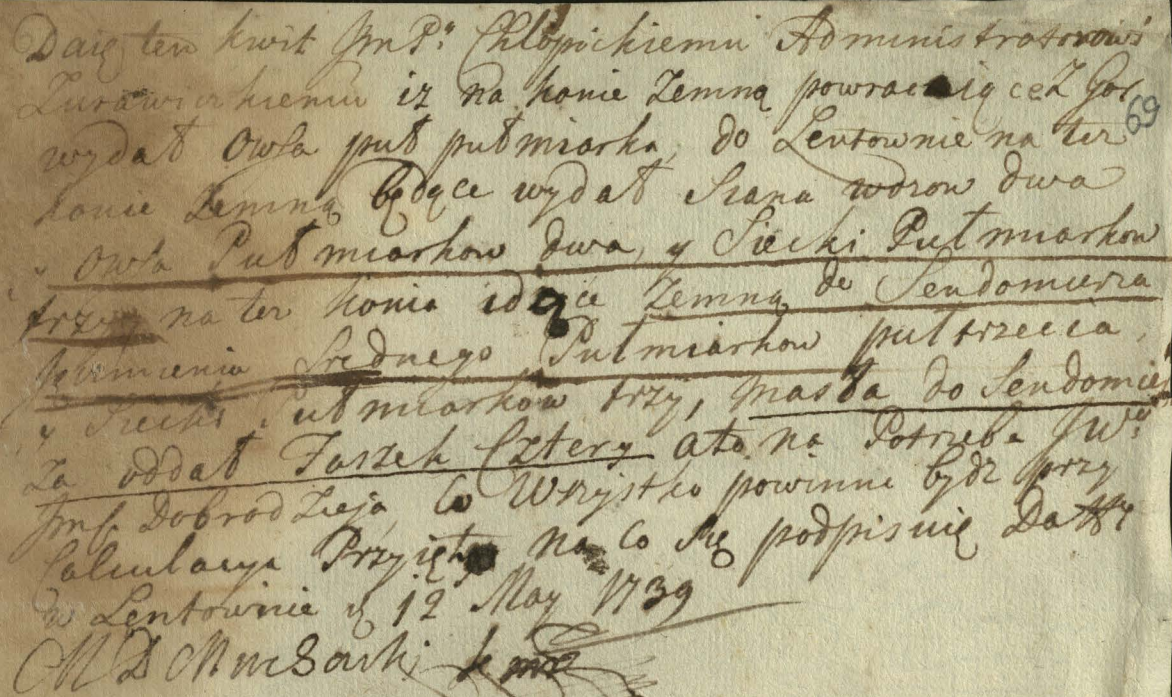 Daię ten kwit Jm P. Chłopickiemu Administratorowi
Zurawickiemu iz na konie Zemną powracaiącę Z Gor
69
wydał Owsa puł pułmiarka, do Lentownie na ter
konie Zemną będące wydał Siana wozow dwa
y owsa Pułmiarkow dwa, y Siecki Pułmiarkow
trzy, na ter konia idące Zemną do Sendomierza
Jęczmienia Srednego Pułmiarkow pułtrzecia,
y Siecki Pułmiarkow trzy, masła do Sendomie
Za oddał Faszek Cztery ato na Potrzebę JW
Jmſ Dobrodzieja, Co Wszystko powinno bydz przy
Calculacyi Przyięto na co się podpisuię Datt
w Lentownie d 12 May 1739
M D